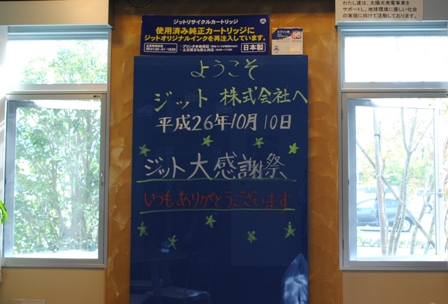 ジットリサイクルカートリッジ
使用済み純正カートリッジに
ジットオリジナルインクを再注入しています。
日本製
わたし達は、太陽光発電事業を
サポートし、地球環境に優しい社会
の実現に向けて活動しております。
ようこそ
ジット 株式会社へ
平成26年10月10日
ジット大感謝祭
いつもありがとうございます